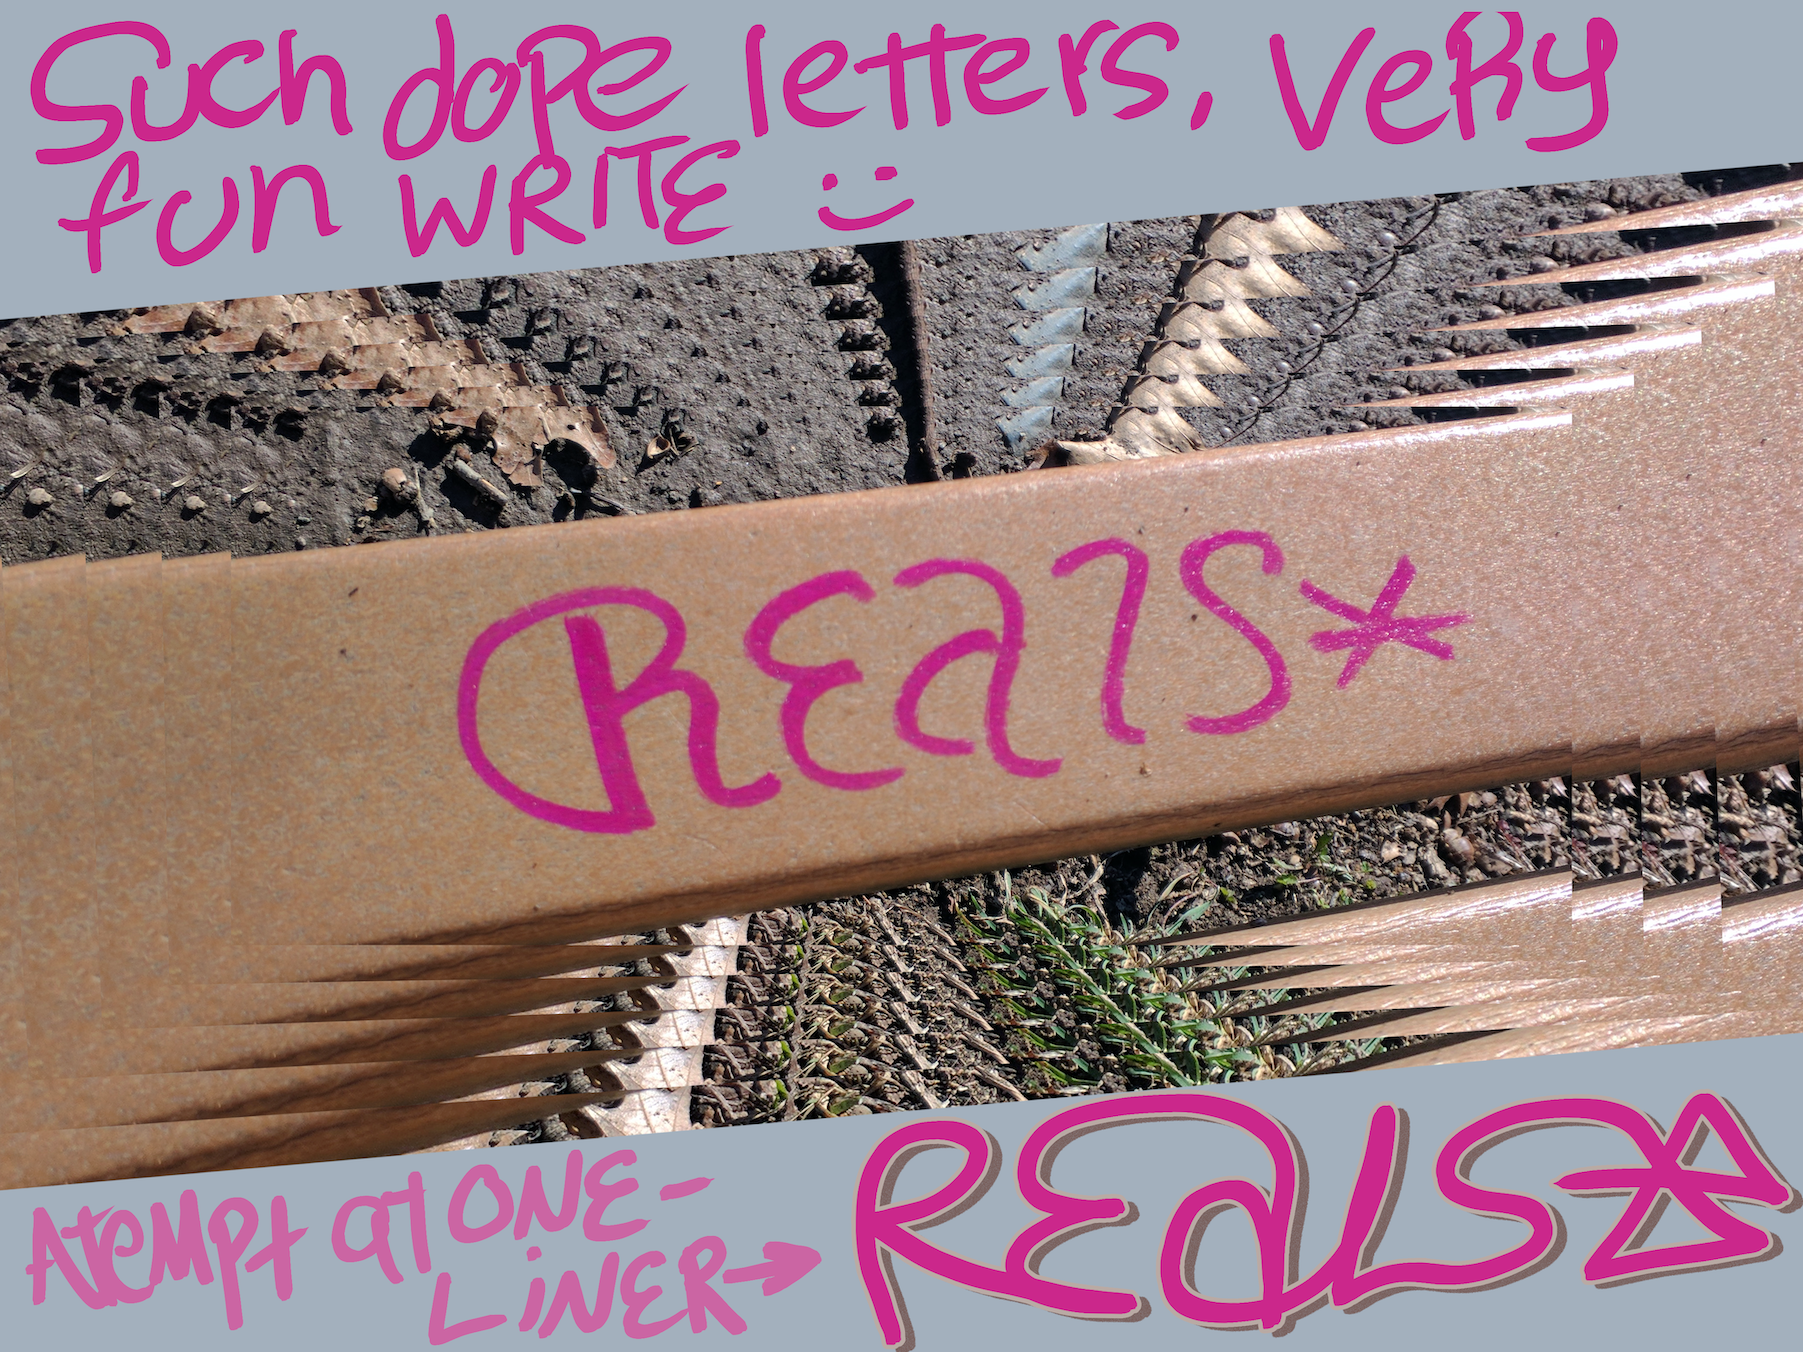 Such dope letters, Very
fun WRITE :)
REals*
Atempt at ONE-
LiNER→ REals*